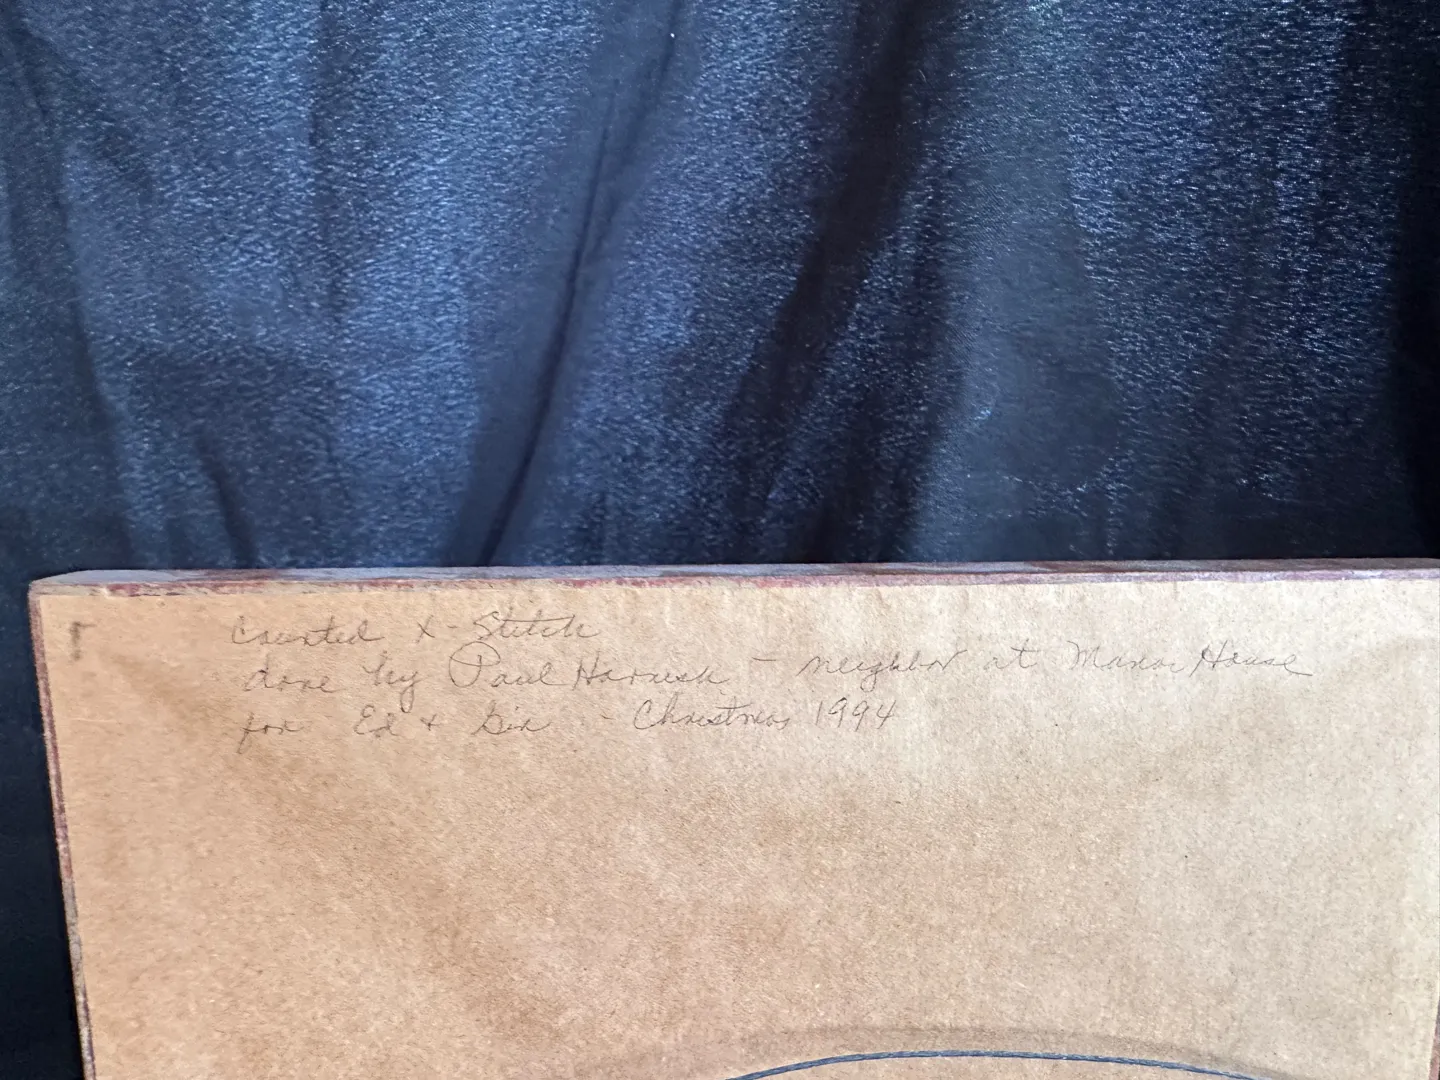 Counted X-Stitch
done by Paul Harnish - neighbor at Manor House
for Ed + Gin - Christmas 1994